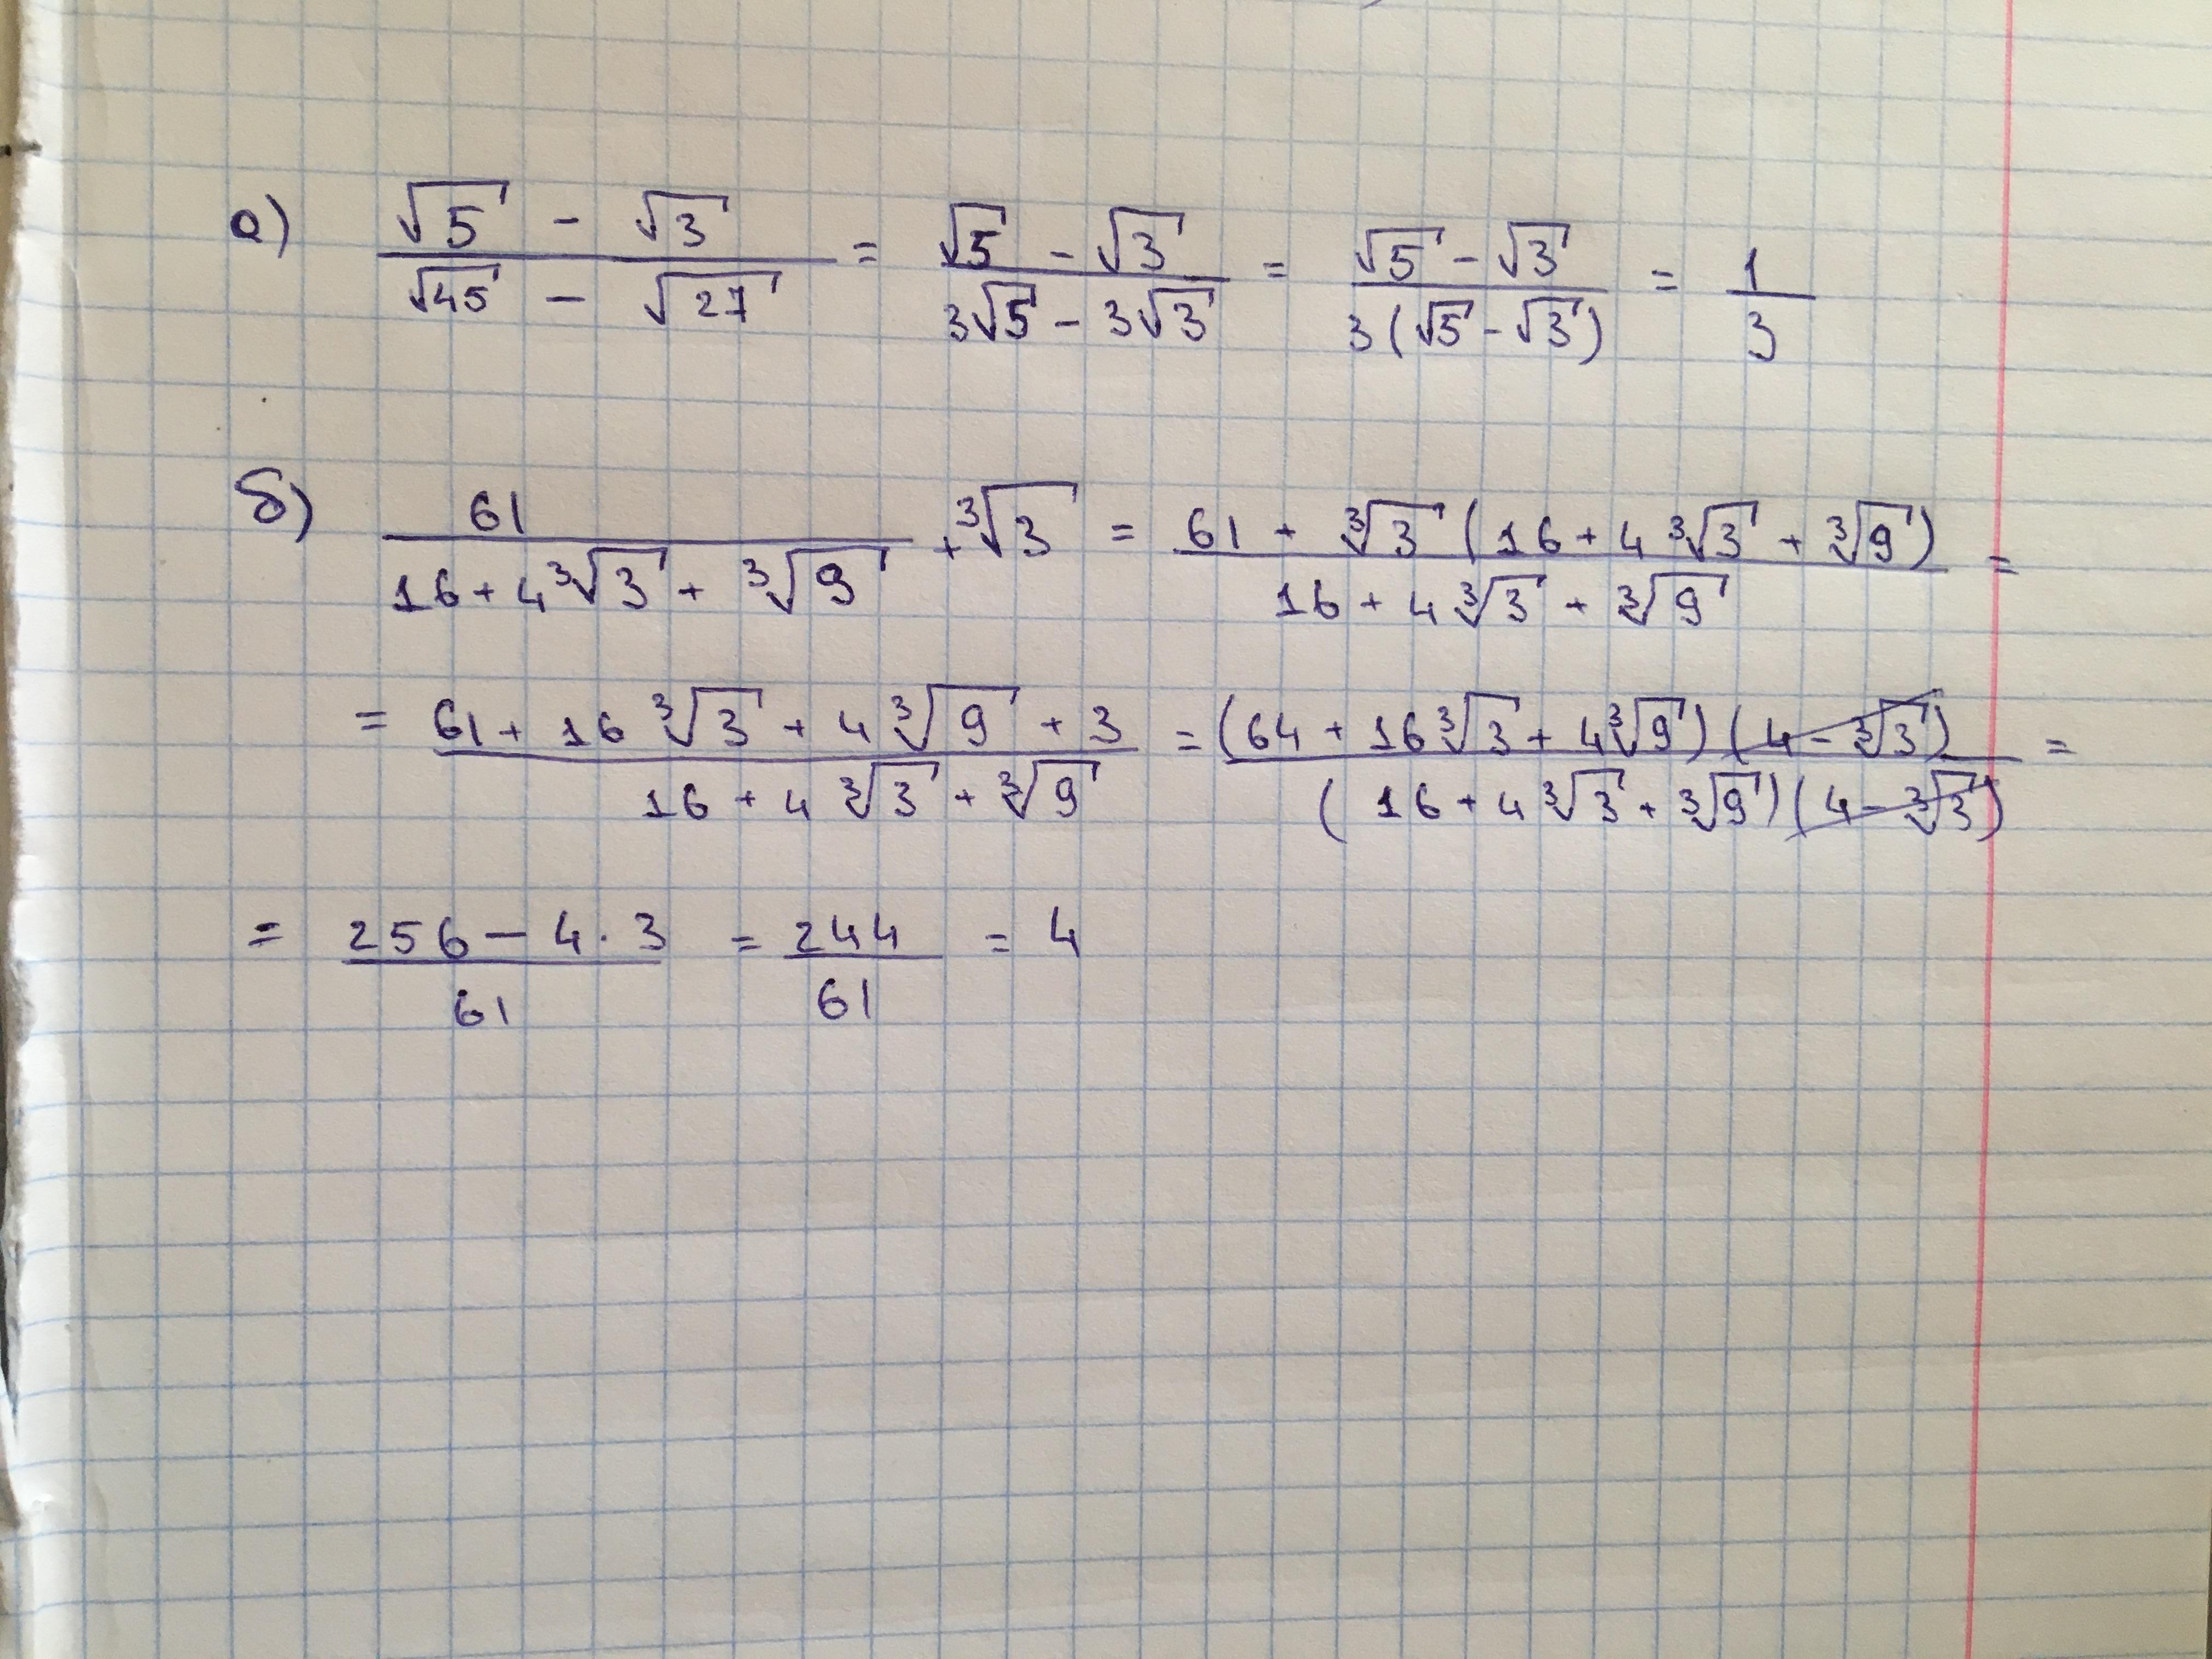 а) (√5 - √3)/(√45 - √27) = (√5 - √3)/(3√5 - 3√3) = (√5 - √3)/(3(√5 - √3)) = 1/3
б) 61/(16 + 4∛3 + ∛9) + ∛3 = (61 + ∛3(16 + 4∛3 + ∛9))/(16 + 4∛3 + ∛9) =
= (61 + 16∛3 + 4∛9 + 3)/(16 + 4∛3 + ∛9) = ((64 + 16∛3 + 4∛9)(4 - ∛3))/((16 + 4∛3 + ∛9)(4 - ∛3)) =
= (256 - 4·3)/61 = 244/61 = 4